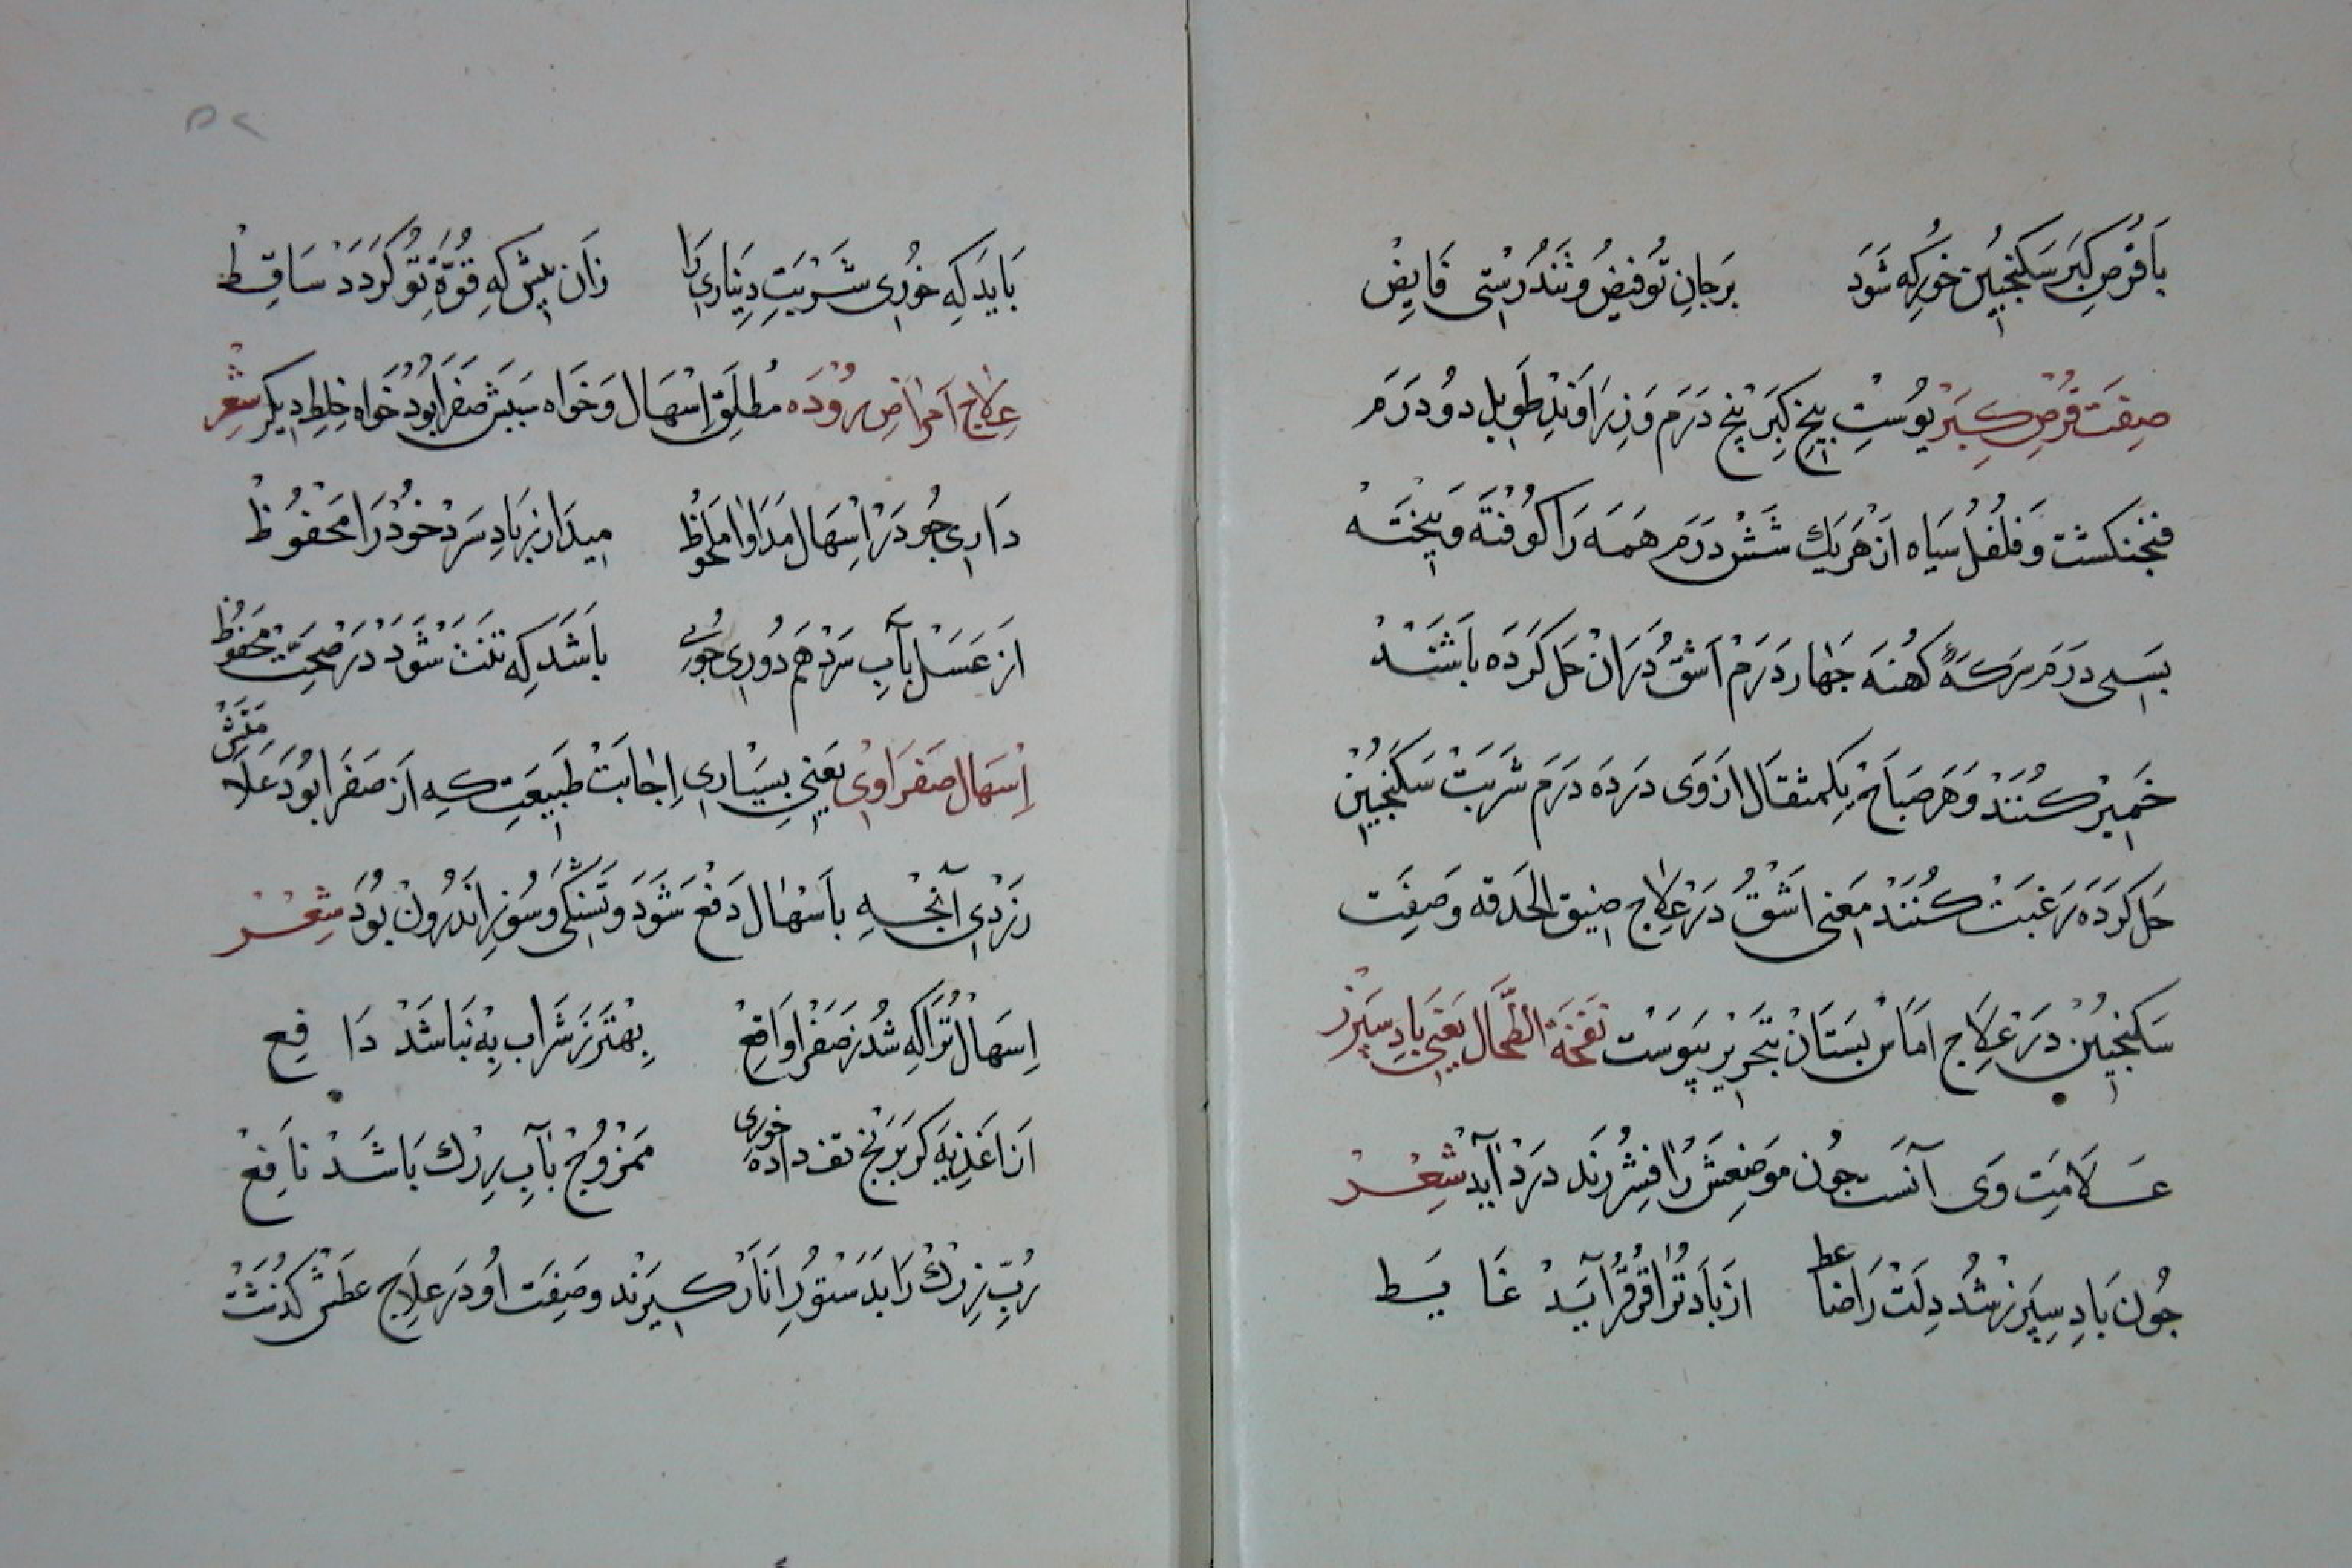 با قرص کبر سکنجبین خور که شود برجان تو فیض و تندرستی فایض
صفت قرص کبر پوست بیخ کبر پنج درم و زراوند طویل دو درم
فنجنکشت و فلفل سیاه از هریك شش درم همه را کوفته و پیخته
بسی درم سرکهٔ کهنه جهار درم اشق دران حل کرده باشند
خمیر کنند و هر صباح یکمثقال از وی در ده درم شربت سکنجبین
حل کرده رغبت کنند معنی اشق در علاج ضیق الحدقه و صفت
سکنجبین در علاج اماس بستان بتحریر پیوست نفخة الطحال یعنی باد سپرز
علامت وی آنست جون موضعش را فشرند درد آید شعر
جون باد سپرز شد دلت را ضاعط از باد ترا قرقر آید غایط
۵۲
باید که خوری شربت دیناری را زان پیش که قوة تو کردد ساقط
علاج امراض روده مطلق اسهال و خواه سببش صفرا بود خواه خلط دیکر شعر
داری جو در اسهال مداوا ملحوظ میدار ز باد سرد خود را محفوظ
از غسل بآب سرد هم دوری جوی باشد که تنت شود در صحت محفوظ
اسهال صفراوی یعنی بسیاری اجابت طبیعت که از صفرا بود علامتش
زردی آنچه باسهال دفع شود و تشنکی و سوزز اندرون بود شعر
اسهال ترا که شد ز صفرا واقع بهتر ز شراب به نباشد دافع
از اغذیه کر برنج تف داده خوری ممزوج بآب زرك باشد نافع
رب زرك را بدستور انار کیرند و صفت او در علاج عطش کذشت